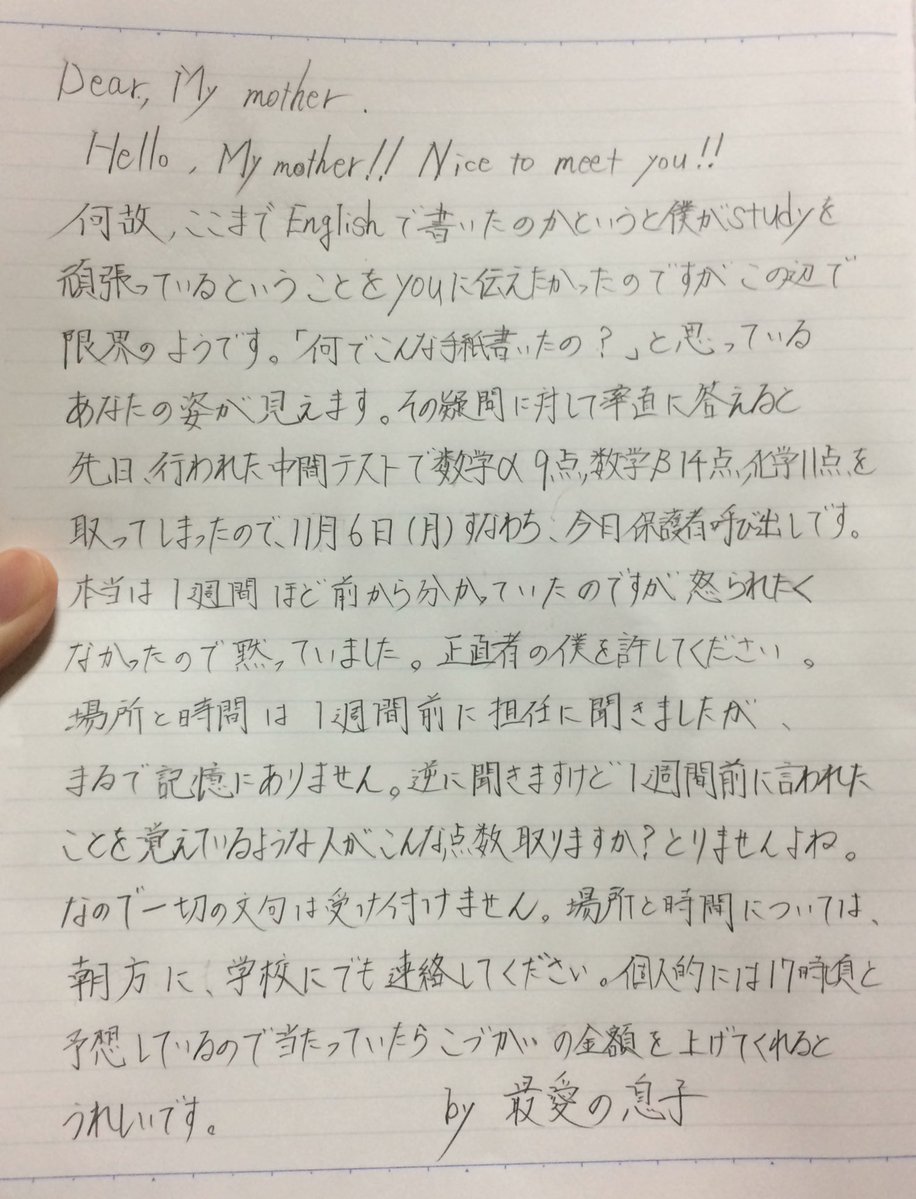 Dear, My mother.
Hello, My mother!! Nice to meet you!!
何故、ここまでEnglishで書いたのかというと僕がstudyを
頑張っているということをyouに伝えたかったのですがこの辺で
限界のようです。「何でこんな手紙書いたの？」と思っている
あなたの姿が見えます。その疑問に対して率直に答えると
先日、行われた中間テストで数学α9点,数学β14点,化学11点を
取ってしまったので、11月6日(月)すなわち、今日保護者呼び出しです。
本当は1週間ほど前から分かっていたのですが怒られたく
なかったので黙っていました。正直者の僕を許してください。
場所と時間は1週間前に担任に聞きましたが、
まるで記憶にありません。逆に聞きますけど1週間前に言われた
ことを覚えているような人がこんな点数取りますか？とりませんよね。
なので一切の文句は受け付けません。場所と時間については、
朝方に、学校にでも連絡してください。個人的には17時頃と
予想しているので当たっていたらこづかいの金額を上げてくれると
うれしいです。
by 最愛の息子